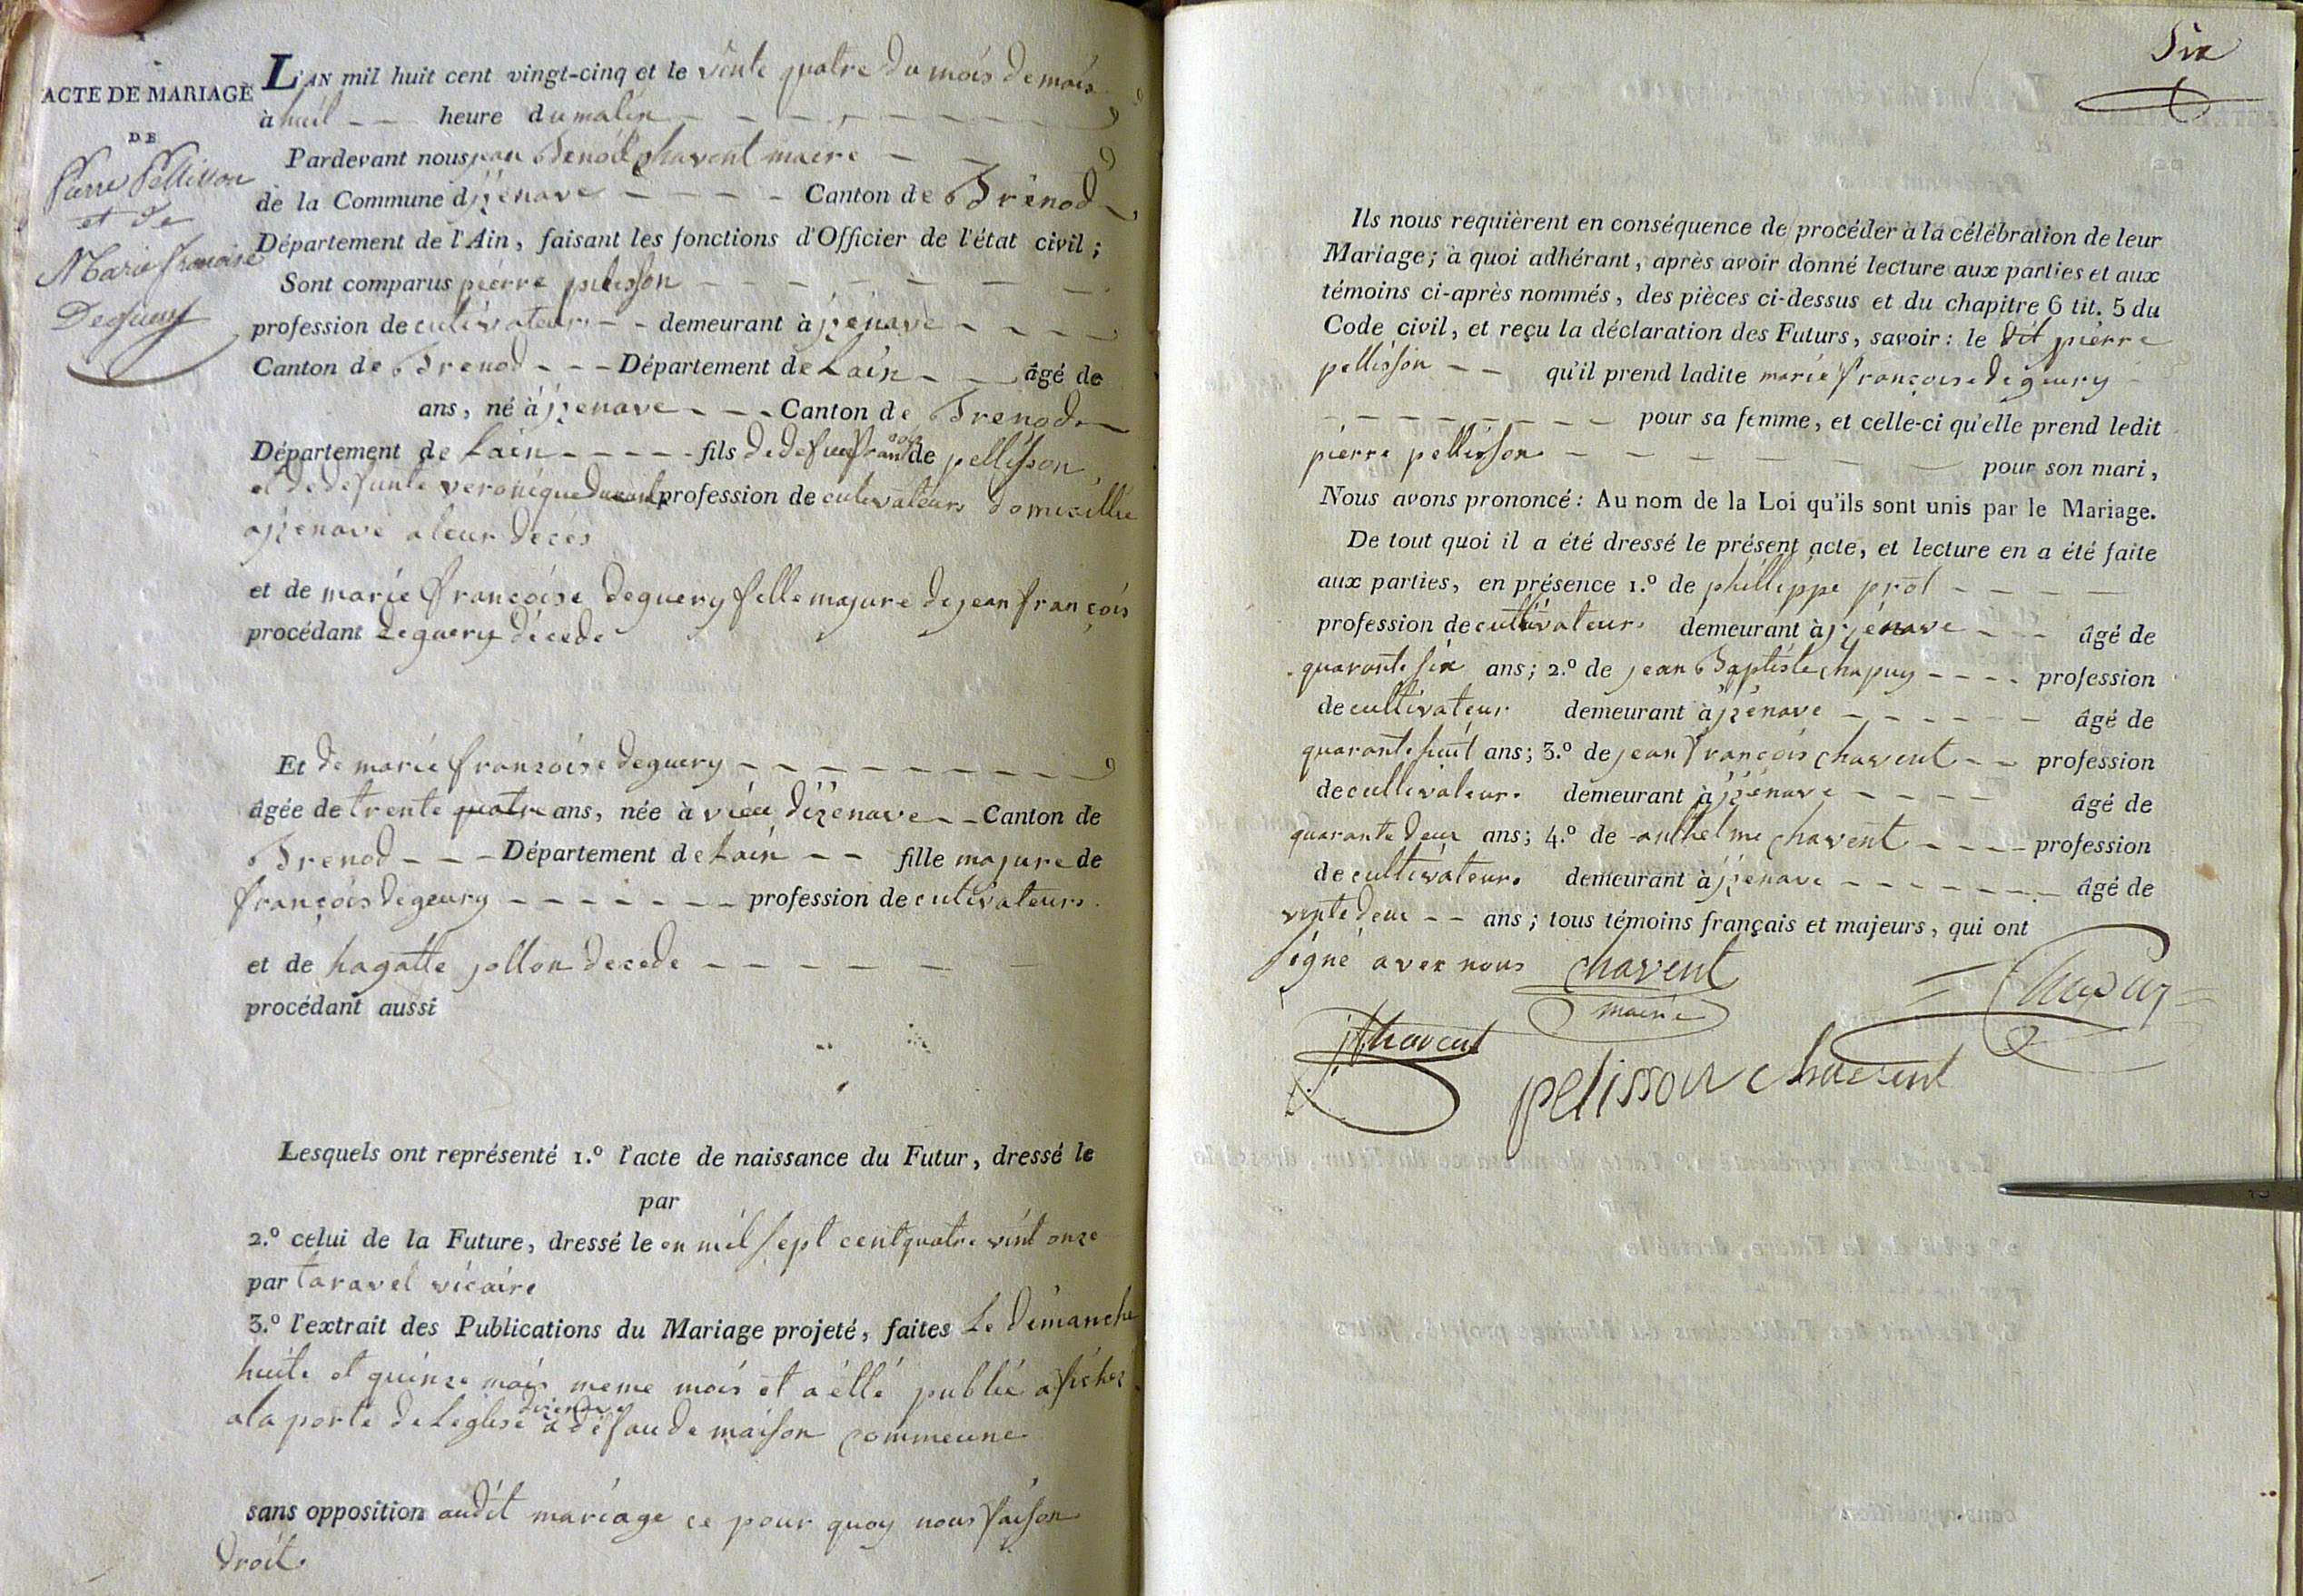 ACTE DE MARIAGE
DE
Pierre Pellisson
et de
Marie françoise
Deguery
L'AN mil huit cent vingt-cinq et le vinte quatre du mois de mars
à huit heure du matin
Pardevant nous jean Benoit chavent maire
de la Commune d'izenave Canton de Brenod
Département de l'Ain, faisant les fonctions d'Officier de l'état civil;
Sont comparus pierre pelisson
profession de cultivateur demeurant à izenave
Canton de Brenod Département de Lain âgé de
ans, né à izenave Canton de Brenod
Département de Lain fils de defun françois de pellisson
et de defunte veronique profession de cutivateurs domicillie
a izenave a leur deces
et de marie françoise deguery fille majure de jean françois
procédant deguery décede
Et de marie françoise deguery
âgée de trente quatre ans, née à vieu dizenave Canton de
Brenod Département de Lain fille majure de
françois degeury profession de cutivateurs
et de hagatte jollon decede
procédant aussi
Lesquels ont représenté 1.º l'acte de naissance du Futur, dressé le
par
2.º celui de la Future, dressé le en mil sept cent quatre vint onze
par taravel vicaire
3.º l'extrait des Publications du Mariage projeté, faites le dimanche
huite et quinze mars meme mois et a étté publié afiches
a la porte de Leglise dizenave a defau de maison commeune
sans opposition audit mariage ce pour quoy nous faison
droit.
Six
Ils nous requièrent en conséquence de procéder à la célébration de leur
Mariage; à quoi adhérant, après avoir donné lecture aux parties et aux
témoins ci-après nommés, des pièces ci-dessus et du chapitre 6 tit. 5 du
Code civil, et reçu la déclaration des Futurs, savoir: le dit pierre
pellisson qu'il prend ladite marie françoise degeury
pour sa femme, et celle-ci qu'elle prend ledit
pierre pellisson pour son mari,
Nous avons prononcé: Au nom de la Loi qu'ils sont unis par le Mariage.
De tout quoi il a été dressé le présent acte, et lecture en a été faite
aux parties, en présence 1.º de phillippe prot
profession de cultivateur demeurant à izénave âgé de
quarante six ans; 2.º de jean Baptiste chapuy profession
de cultivateur demeurant à izenave âgé de
quarante huit ans; 3.º de jean françois chavent profession
de cultivateur demeurant à izenave âgé de
quarante deux ans; 4.º de anthelme chavent profession
de cultivateur demeurant à izenave âgé de
vinte deux ans; tous témoins français et majeurs, qui ont
signé avec nous chavent
maire
Chapuy
jf chavent
pelisson chavent